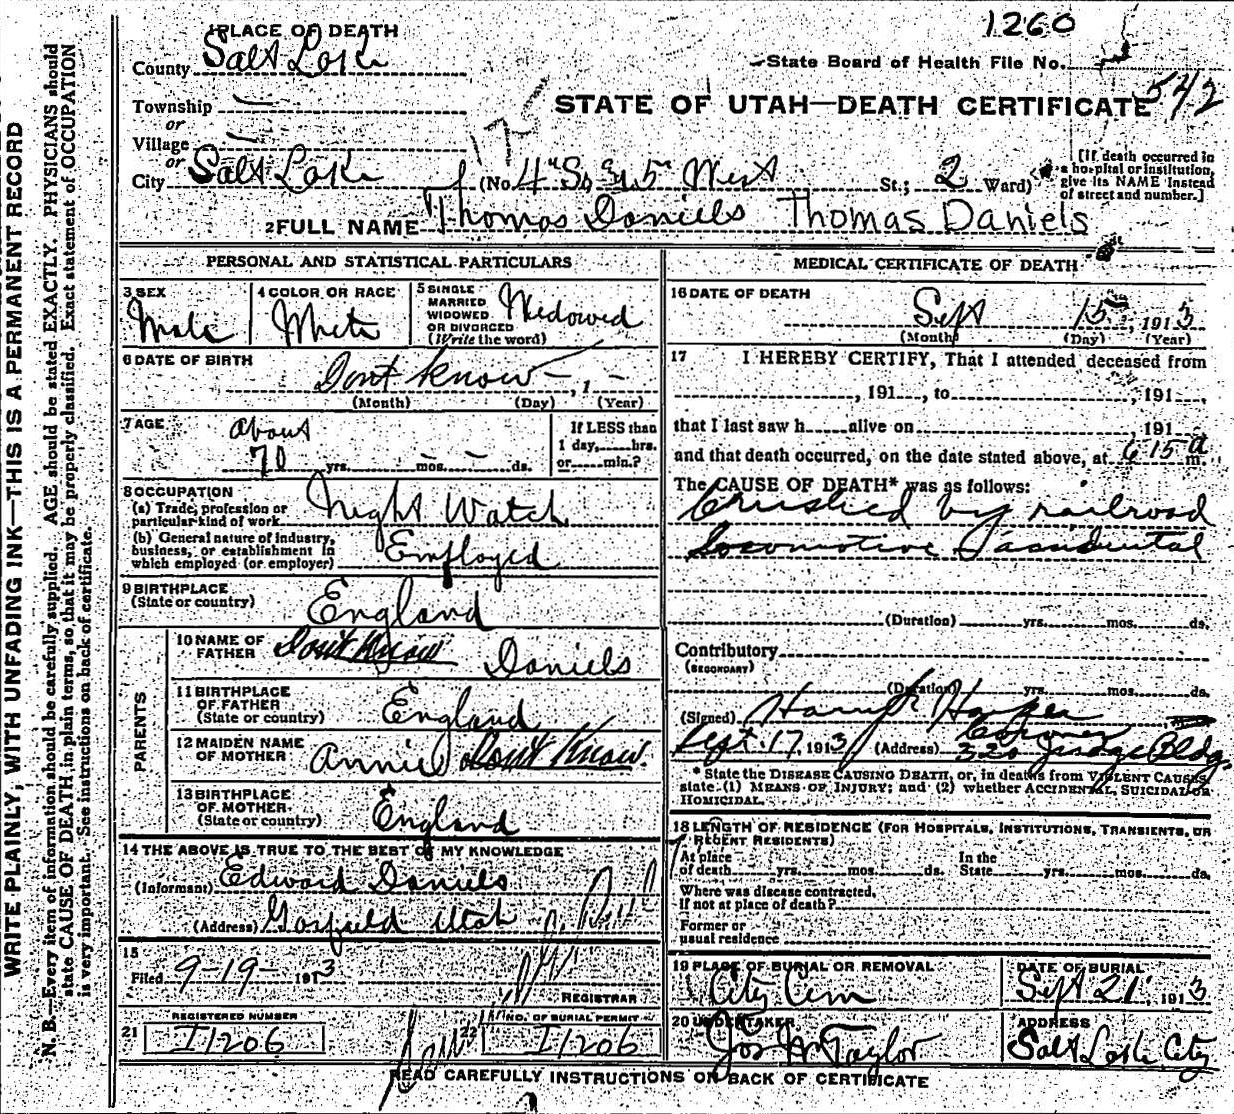 1260
1 PLACE OF DEATH
County Salt Lake
State Board of Health File No.
542
Township —
or
Village —
or
City Salt Lake
STATE OF UTAH—DEATH CERTIFICATE
(No. 4" So 3 & 5" West St.; 2 Ward)
[If death occurred in a hospital or institution, give its NAME instead of street and number.]
2 FULL NAME Thomas Daniels Thomas Daniels
PERSONAL AND STATISTICAL PARTICULARS
3 SEX
Male
4 COLOR OR RACE
White
5 SINGLE
MARRIED
WIDOWED
OR DIVORCED
(Write the word)
Widowed
6 DATE OF BIRTH
Dont Know — , 1 —
(Month) (Day) (Year)
7 AGE
about
70 yrs. — mos. — ds.
If LESS than
1 day, hrs.
or min.?
8 OCCUPATION
(a) Trade, profession or
particular kind of work Night Watch
(b) General nature of industry,
business, or establishment in
which employed (or employer) Employed
9 BIRTHPLACE
(State or country) England
PARENTS
10 NAME OF
FATHER Dont Know Daniels
11 BIRTHPLACE
OF FATHER
(State or country) England
12 MAIDEN NAME
OF MOTHER Annie Dont Know.
13 BIRTHPLACE
OF MOTHER
(State or country) England
14 THE ABOVE IS TRUE TO THE BEST OF MY KNOWLEDGE
(Informant) Edward Daniels
(Address) Garfield Utah
15
Filed 9-19- 1913
REGISTRAR
21 REGISTERED NUMBER
I1206
22 NO. OF BURIAL PERMIT
I1206
MEDICAL CERTIFICATE OF DEATH
16 DATE OF DEATH
Sept 15, 1913
(Month) (Day) (Year)
17 I HEREBY CERTIFY, That I attended deceased from
, 191 , to , 191 ,
that I last saw h alive on , 191
and that death occurred, on the date stated above, at 6 15 a m.
The CAUSE OF DEATH* was as follows:
Crushed by railroad
locomotive Accidental
(Duration) yrs. mos. ds.
Contributory
(SECONDARY)
(Duration) yrs. mos. ds.
(Signed) Harry Harper
Coroner
Sept. 17, 1913 (Address) 320 Judge Bldg.
* State the DISEASE CAUSING DEATH, or, in deaths from VIOLENT CAUSES,
state (1) MEANS OF INJURY; and (2) whether ACCIDENTAL, SUICIDAL OR
HOMICIDAL.
18 LENGTH OF RESIDENCE (FOR HOSPITALS, INSTITUTIONS, TRANSIENTS, OR
RECENT RESIDENTS)
At place
of death yrs. mos. ds.
In the
State yrs. mos. ds.
Where was disease contracted.
If not at place of death?
Former or
usual residence
19 PLACE OF BURIAL OR REMOVAL
City Cem
DATE OF BURIAL
Sept 21, 1913
20 UNDERTAKER
Jos Wm Taylor
ADDRESS
Salt Lake City
READ CAREFULLY INSTRUCTIONS ON BACK OF CERTIFICATE
WRITE PLAINLY, WITH UNFADING INK—THIS IS A PERMANENT RECORD
N. B.—Every item of information should be carefully supplied. AGE should be stated EXACTLY. PHYSICIANS should
state CAUSE OF DEATH in plain terms, so that it may be properly classified. Exact statement of OCCUPATION
is very important. See instructions on back of certificate.